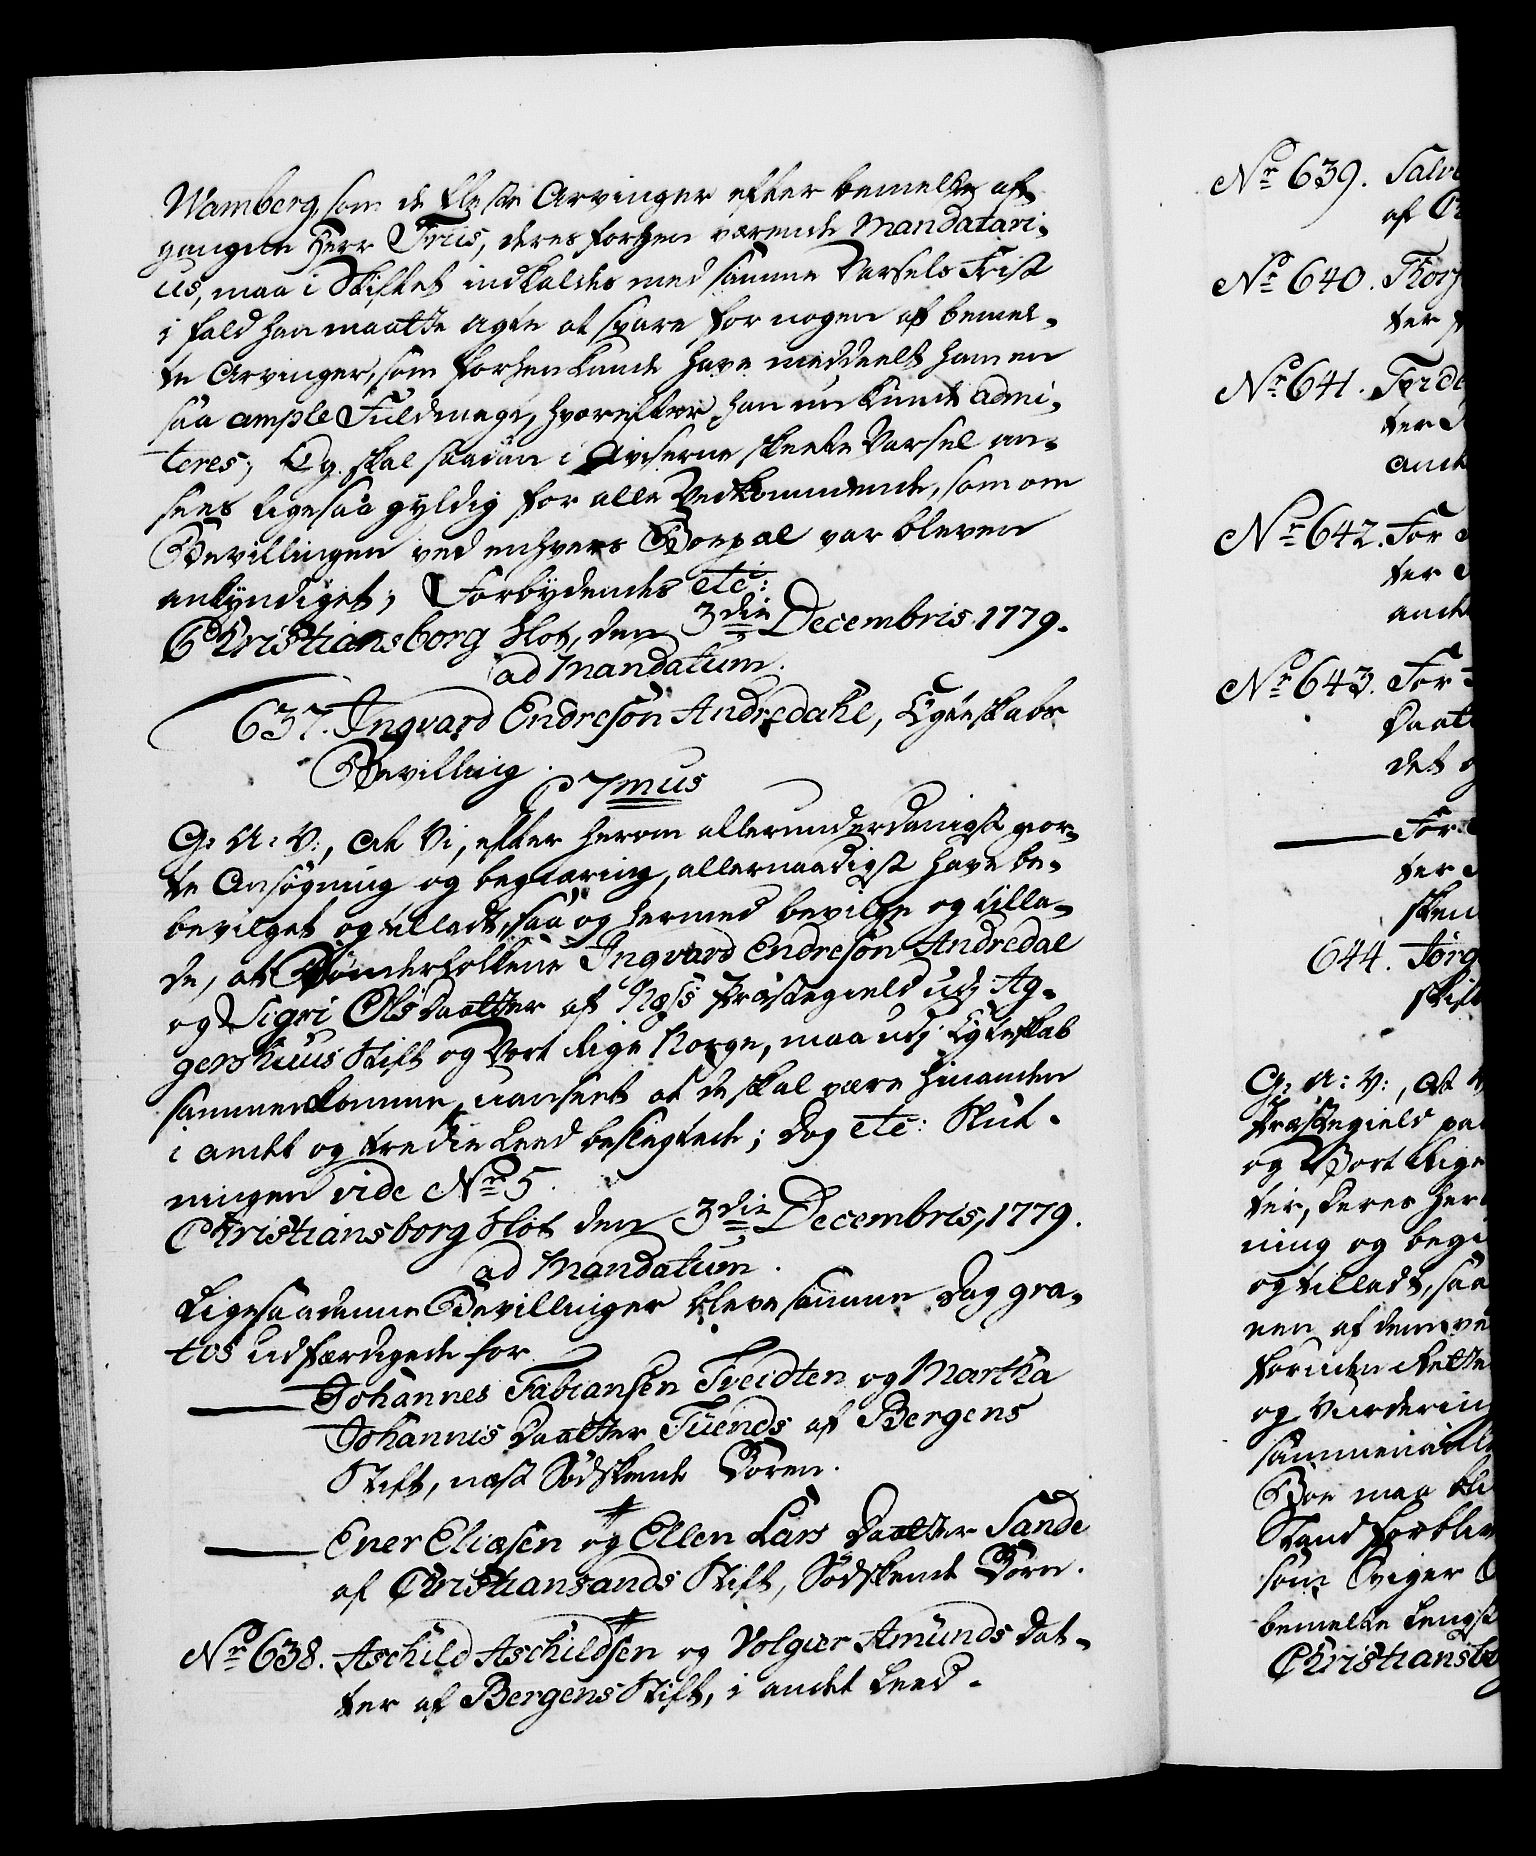 Wamberg, som de fleste Arvinger efter bemelte af-
gangne Herr Friis, deres forhen værende Mandatari-
us, maa i Skiftet indkaldes med samme Varsels Frist
i fald han maatte agte at svare for nogen af bemel-
te Arvinger, som forhen kunde have meddeelt ham en
saa ample Fuldmagt, hvorefter han nu kunde admi-
teres; Og skal saadan i Aviserne skeete Varsel an-
sees ligesaa gyldig for alle Vedkommende, som om
Bevillingen ved enhvers Boepæl var bleven
ankyndiget; Forbydendes etc:
Christiansborg Slot, den 3die Decembris 1779.
ad Mandatum.
637. Ingvard Endresön Andredahl, Egteskabs
Bevilling.
C 7mus
G: A: V:, at Vi, efter herom allerunderdanigst gior-
te Ansögning og begiæring, allernaadigst have be-
bevilget og tilladt, saa og hermed bevilge og tilla-
de, at Bonderfolkene Ingvard Endresön Andredal
og Sigri Ols Daatter af Næss Præstegield udj Ag-
gershuus Stift og Vort Rige Norge, maa udj Egteskab
sammenkomme, uanseet at de skal være hinanden
i andet og tredie Leed beslegtede; dog etc: Slut-
ningen vide No 5.
Christiansborg Slot den 3die Decembris, 1779.
ad Mandatum.
Ligesaadanne Bevillinger bleve samme Dag gra-
tos udfærdigede for
Johannes Fabiansen Tveidten og Martha
Johannis Daatter Tuends af Bergens
Stift, næst Södskende Bören.
Ener Eliæsen og Ellen Lars Daatter Sande
af Christiansands Stift, Södskende Börn.
No 638. Aschild Aschildsen og Volgier Amunds Dat-
ter af Bergens Stift, i andet Leed.
No 639. Salv
af
No 640. Thor
ter
No 641. Torde
ter
andet
No 642. For
ter
andet
No 643. For
Daat
det
For
ter
sken
644. Jörg
skif
G: A: V:, at
Præstegield paa
og Vort Rige
ter, deres her
ning og begi
og tilladt, saa
nen af dem ve
foruden Rette
og Vurdering
sammenavle
Boe maa bli
Stand forbliv
som Sviger
bemelte Lengst
Christiansbo